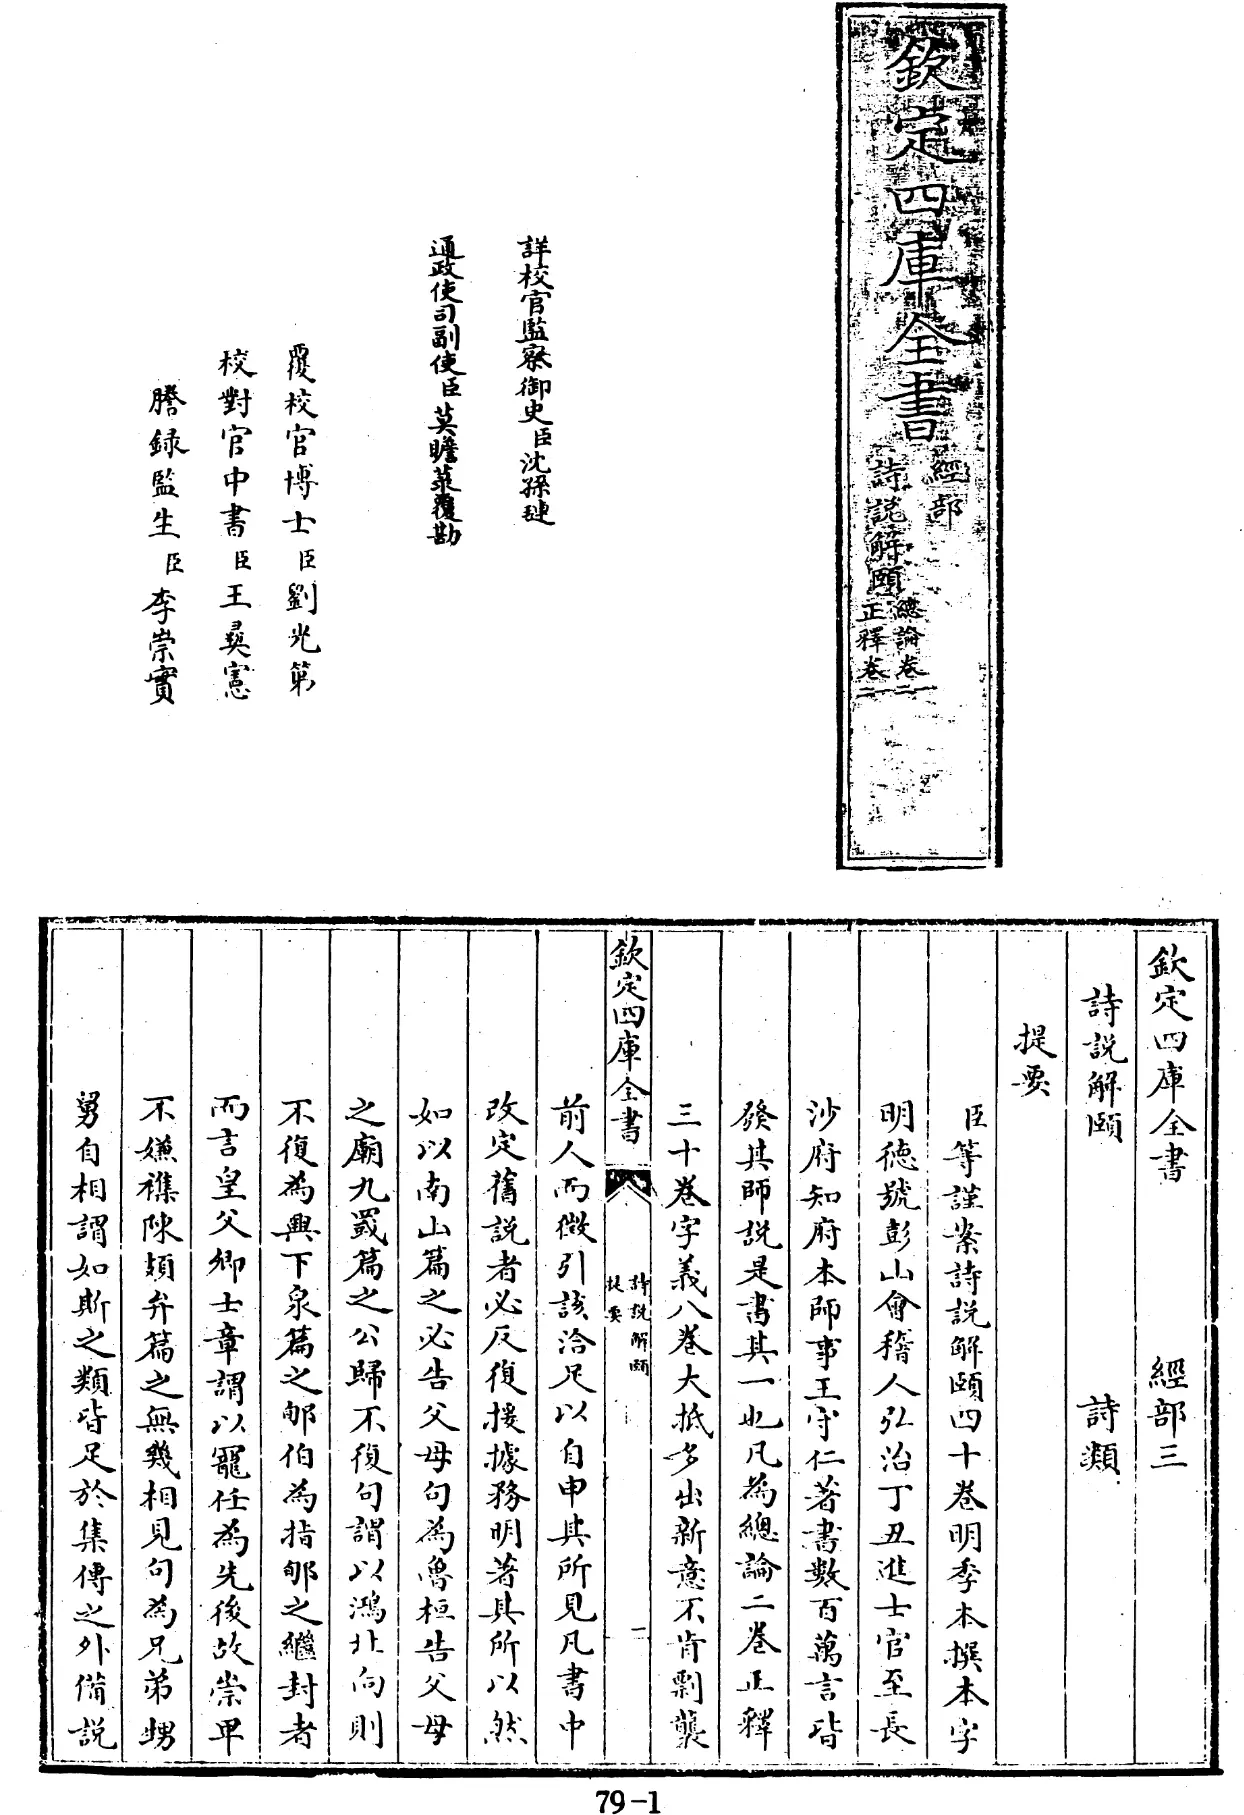 欽定四庫全書
經部
詩説解頤
總論卷一二
正釋卷一二
詳校官監察御史臣沈孫璉
通政使司副使臣莫瞻菉覆勘
覆校官博士臣劉光第
校對官中書臣王㷆憲
謄録監生臣李崇實
欽定四庫全書 經部三
詩説解頤 詩類
提要
臣等謹案詩説解頤四十卷明季本撰本字
明德號彭山會稽人弘治丁丑進士官至長
沙府知府本師事王守仁著書數百萬言皆
發其師説是書其一也凡為總論二卷正釋
三十卷字義八卷大抵多出新意不肯剽襲
欽定四庫全書
詩説解頤
提要
一
前人而徵引該洽足以自申其所見凡書中
改定舊説者必反復援據務明著其所以然
如以南山篇之必告父母句為魯桓告父母
之廟九罭篇之公歸不復句謂以鴻北向則
不復為興下泉篇之郇伯為指郇之繼封者
而言皇父卿士章謂以寵任為先後故崇卑
不嫌襍陳頍弁篇之無幾相見句為兄弟甥
舅自相謂如斯之類皆足於集傳之外備説
79-1